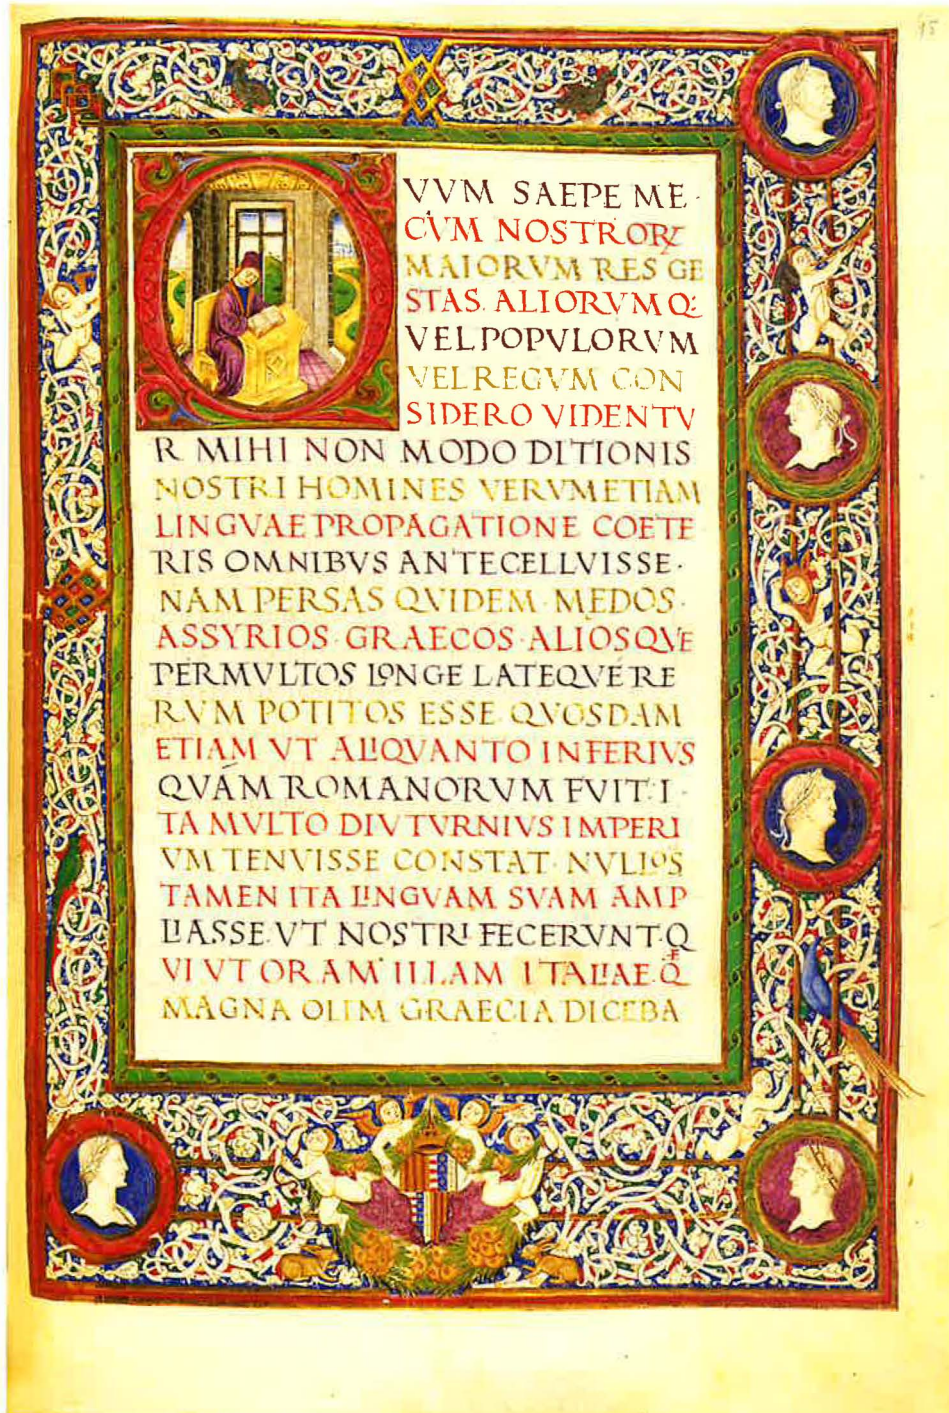 95
VVM SAEPE ME·
CVM NOSTROR
MAIORVM RES GE
STAS. ALIORVM Q:
VEL POPVLORVM
VEL REGVM CON
SIDERO VIDENTV
R MIHI NON MODO DITIONIS
NOSTRI HOMINES VERVM ETIAM
LINGVAE PROPAGATIONE COETE
RIS OMNIBVS ANTECELLVISSE·
NAM PERSAS QVIDEM· MEDOS·
ASSYRIOS· GRAECOS· ALIOSQVE
PERMVLTOS LONGE LATEQVE RE
RVM POTITOS ESSE· QVOSDAM
ETIAM VT ALIQVANTO INFERIVS
QVAM ROMANORVM FVIT: I·
TA MVLTO DIVTVRNIVS IMPERI
VM TENVISSE CONSTAT· NVLLOS
TAMEN ITA LINGVAM SVAM AMP
LIASSE VT NOSTRI FECERVNT· Q
VI VT ORAM ILLAM ITALIAE· Q
MAGNA OLIM GRAECIA DICEBA